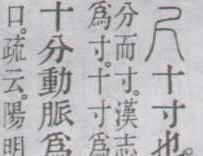 尺十寸也。
分而寸。漢志
爲寸。十寸爲
十分動脈爲
口。疏云。陽明